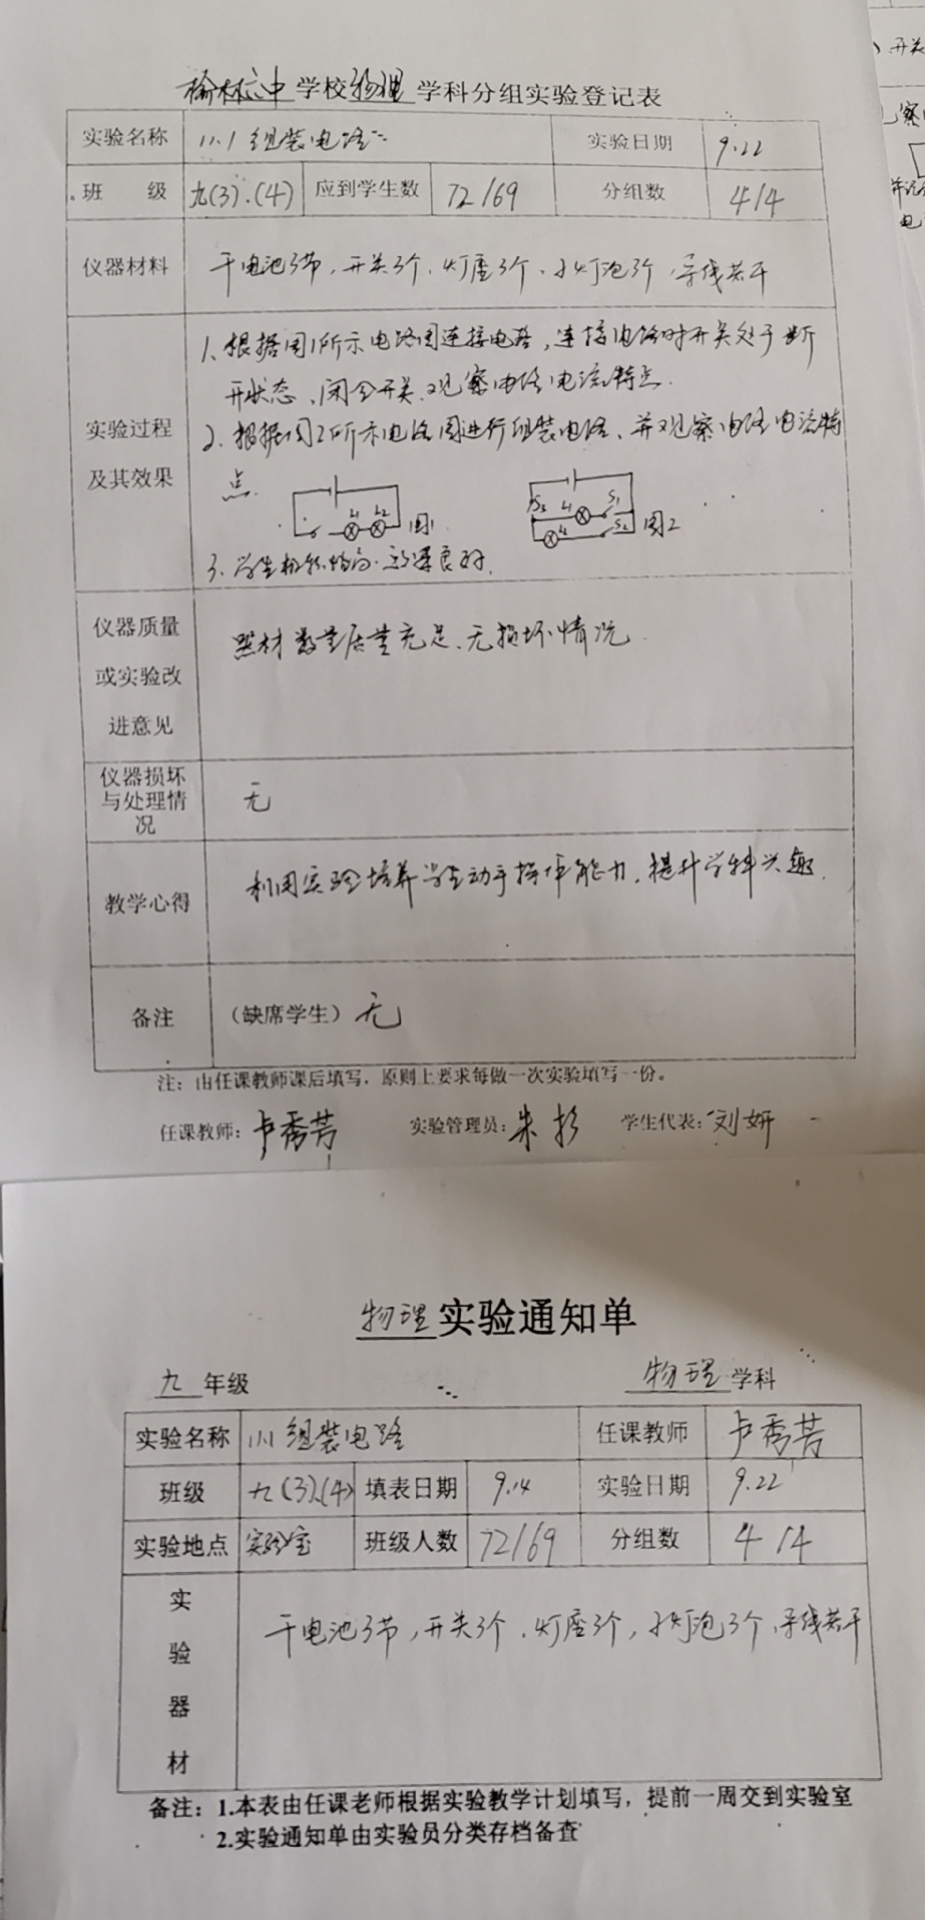 榆林六中学校物理学科分组实验登记表
实验名称 11.1组装电路 实验日期 9.22
班 级 九(3).(4) 应到学生数 72/69 分组数 4/4
仪器材料 干电池3节,开关3个,灯座3个,小灯泡3个,导线若干
实验过程及其效果
1、根据图1所示电路图连接电路,连接电路时开关处于断
开状态、闭合开关、观察电路电流特点.
2、根据图2所示电路图进行组装电路、并观察电路电流特
点.
L1 L2 图1
S3 L1 S1 L2 S2 图2
3、学生积极性高,效果良好.
仪器质量
或实验改
进意见
器材数量质量充足、无损坏情况
仪器损坏
与处理情
况
无
教学心得 利用实验培养学生动手操作能力,提升学科兴趣.
备注 (缺席学生) 无
注:由任课教师课后填写,原则上要求每做一次实验填写一份。
任课教师:卢秀芳 实验管理员:朱杉 学生代表:刘妍
物理实验通知单
九 年级 物理 学科
实验名称 11.1组装电路 任课教师 卢秀芳
班级 九(3).(4) 填表日期 9.14 实验日期 9.22
实验地点 实验室 班级人数 72/69 分组数 4/4
实
验
器
材
干电池3节,开关3个,灯座3个,小灯泡3个,导线若干
备注:1.本表由任课老师根据实验教学计划填写,提前一周交到实验室
2.实验通知单由实验员分类存档备查
开关
察
电